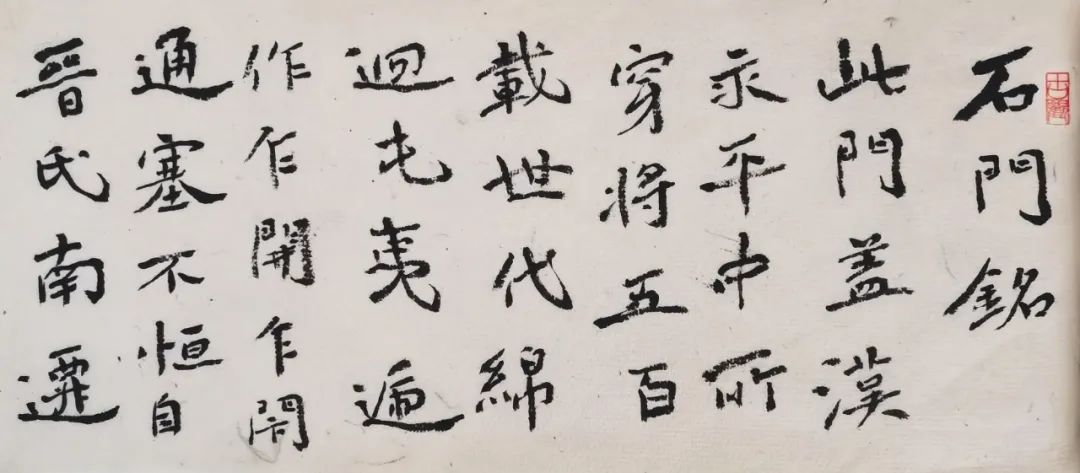 石門銘
此門盖漢
永平中所
穿將五百
載世代綿
迴屯夷遞
作乍開乍閇
通塞不恒自
晉氏南遷